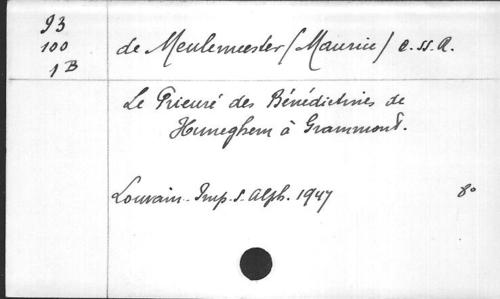 93
100
1 B
de Meulemeester (Maurice) C. SS. R.
Le Prieuré des Bénédictines de
Huneghem à Grammont.
Louvain. Imp. S. Alph. 1947
8°